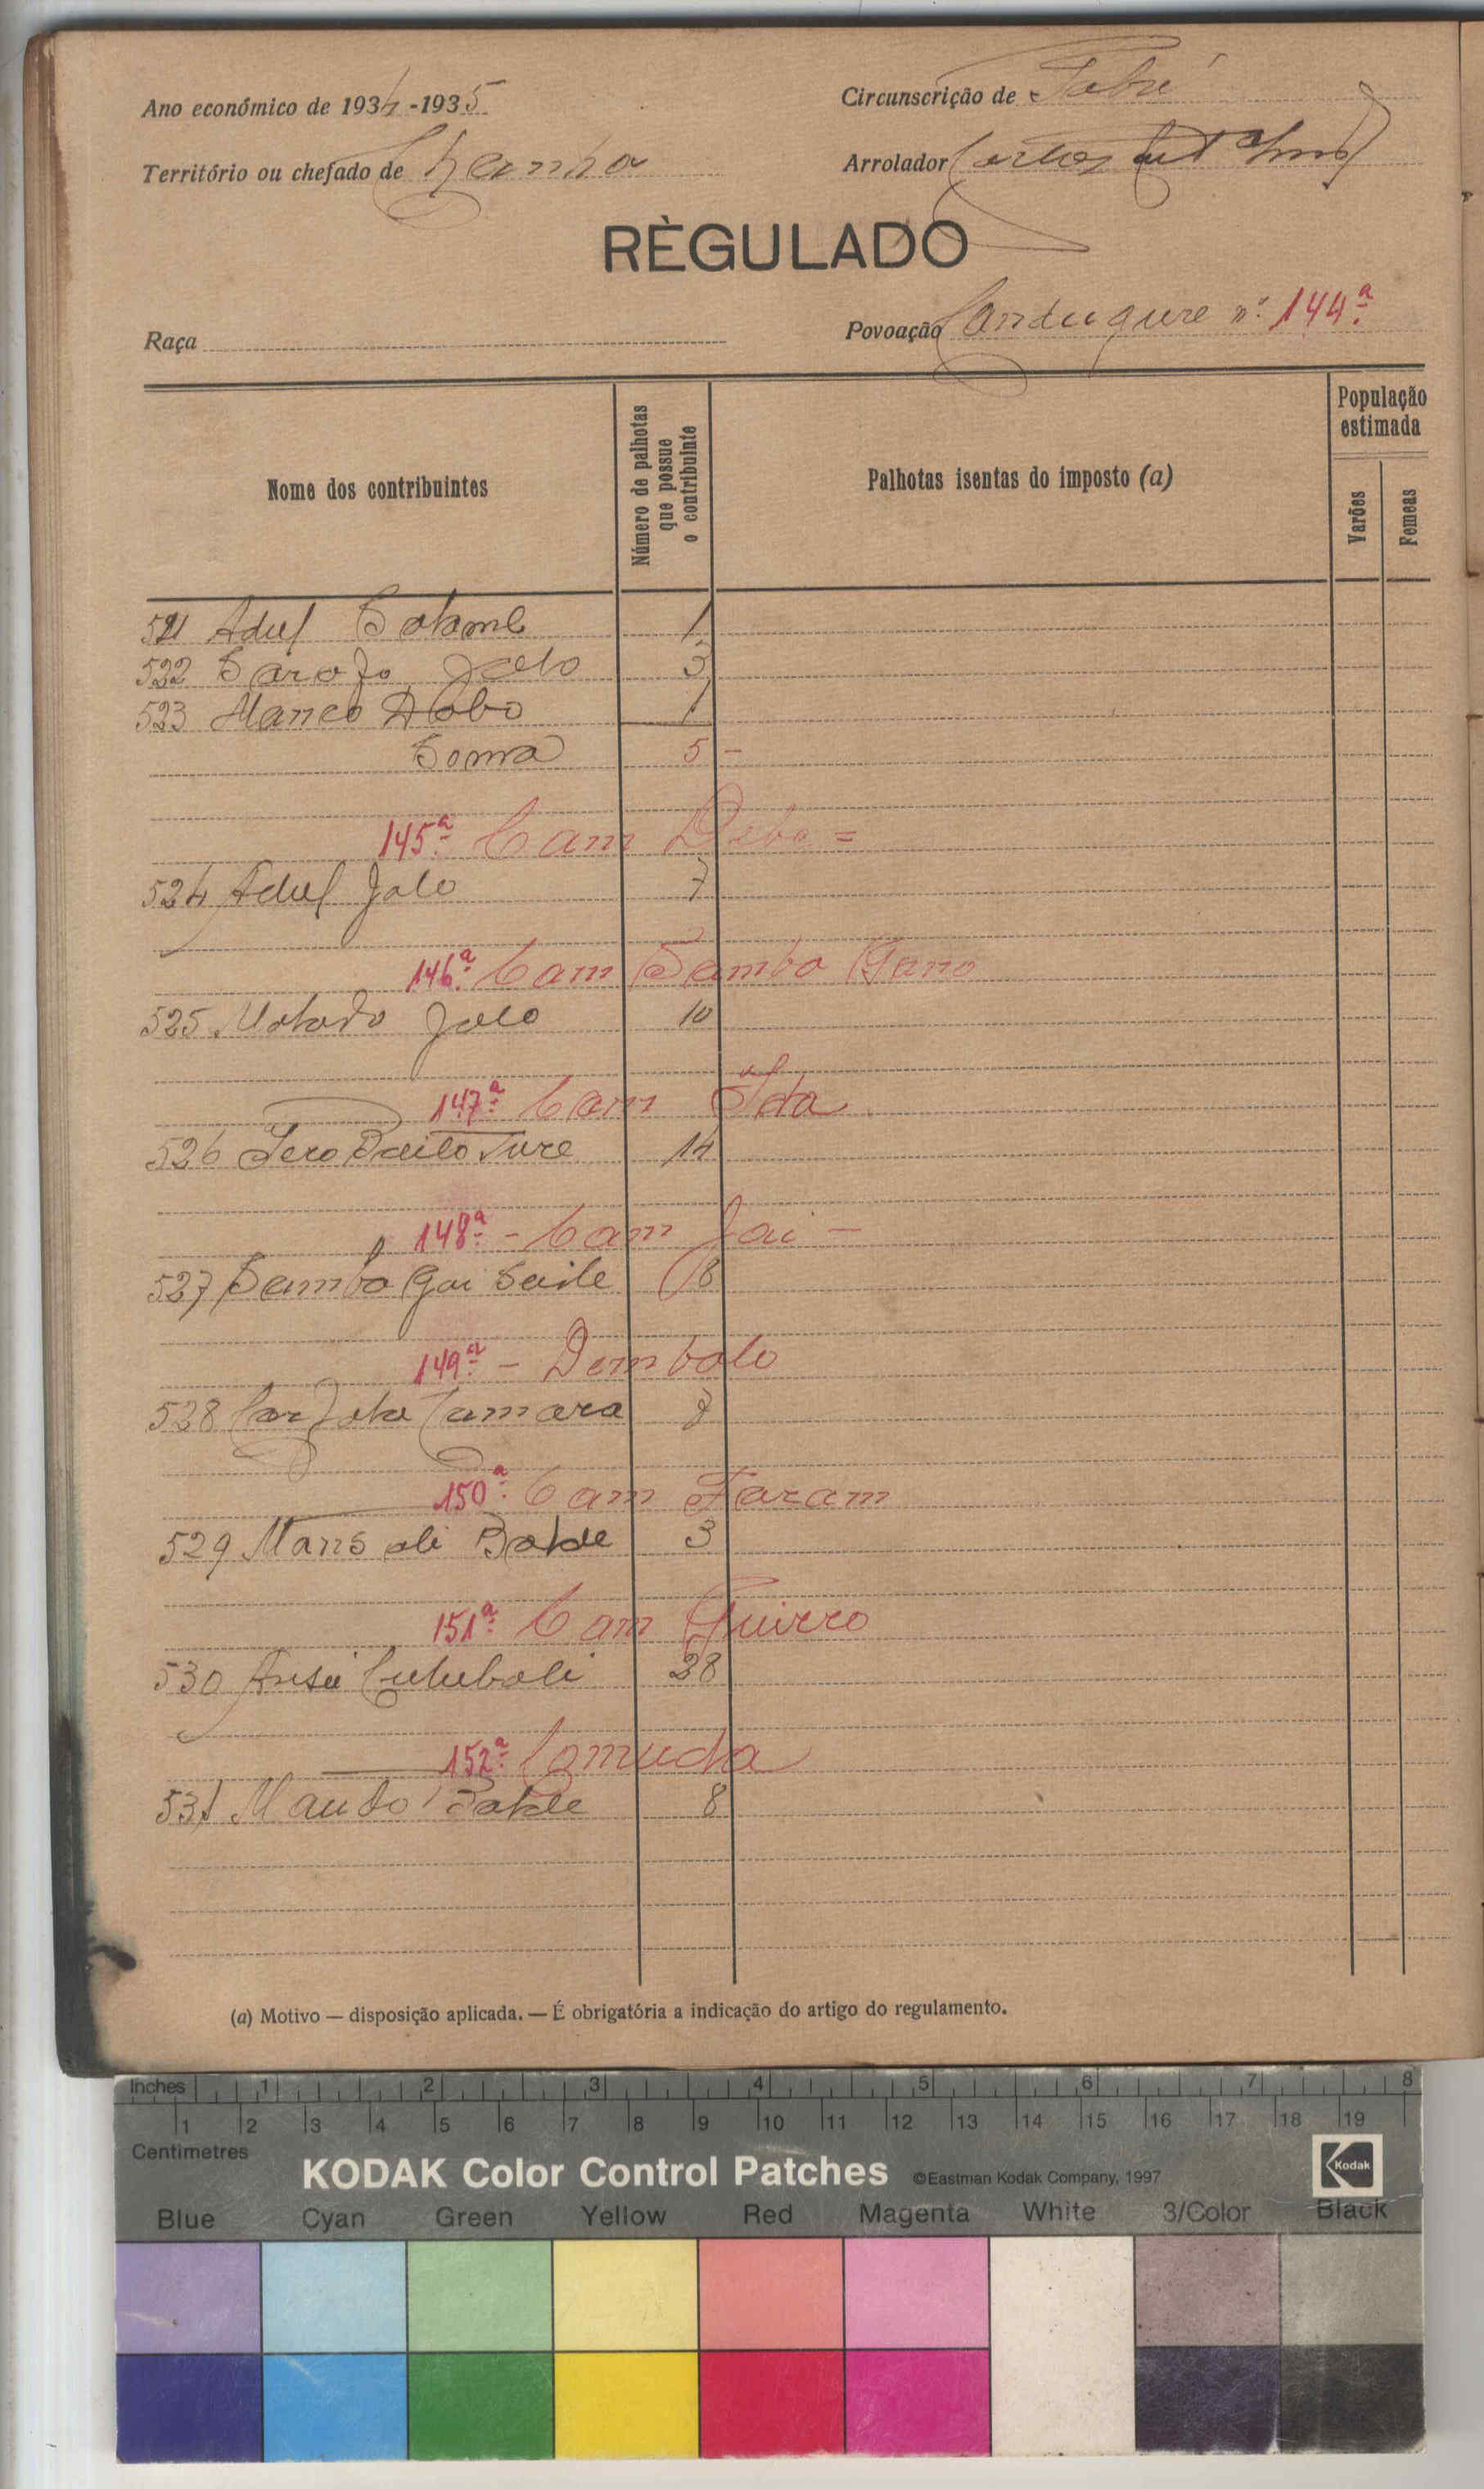 Ano económico de 1934-1935
Circunscrição de
Território ou chefado de Chanha
Arrolador Carlos
RÈGULADO
Raça
Povoação Canduqure nº 144ª
Nome dos contribuintes
Número de palhotas que possue o contribuinte
Palhotas isentas do imposto (a)
População estimada
Varões
Femeas
521 Adul 1
522 Jalo 3
523 1
Soma 5 -
145ª Cam Debo =
524 Adul Jalo 7
146ª Cam Sambo Gano
525 Jalo 10
147ª Cam
526 Sero Bailo Ture 14
148ª - Cam Jai -
527 Sambo Gai Baile 18
149ª - Dembalo
528 Camara
150ª Cam Faram
529 Mans ali Balde 3
151ª Cam Guirro
530 Ansu Culubali 28
152ª Camuda
531 Maudo Balde 8
(a) Motivo — disposição aplicada. — É obrigatória a indicação do artigo do regulamento.
Inches 1 2 3 4 5 6 7 8
1 2 3 4 5 6 7 8 9 10 11 12 13 14 15 16 17 18 19
Centimetres
KODAK Color Control Patches ©Eastman Kodak Company, 1997 Kodak
Blue Cyan Green Yellow Red Magenta White 3/Color Black